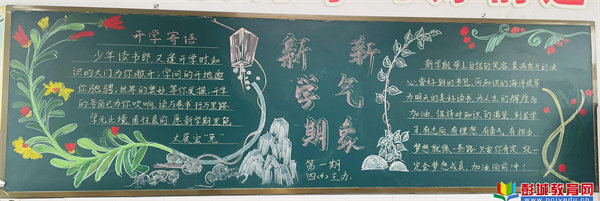 开学寄语
少年读书郎,又逢开学时,知
识的大门为你敞开;学问的开地邀
你驰骋,世界的奥妙等你发掘,开学
的号角已为你吹响,读万卷书行万里路
学无止境勇往直前愿新学期里能
大展宏兔
新学期
新气象
第一期
四(4)主办
新学期,带上自信的笑容,装满努力的决
心,背好新的书包,向知识的海洋进军
为明天的美好读书,为人生的辉煌而
加油,保持对知识的渴望,到花学
习,有志向,有理想,有勇气,有担当
梦想就像一条路,只要你肯定,就一
定会梦想成真,加油向前冲!
彭城教育网
pcjyedu.com